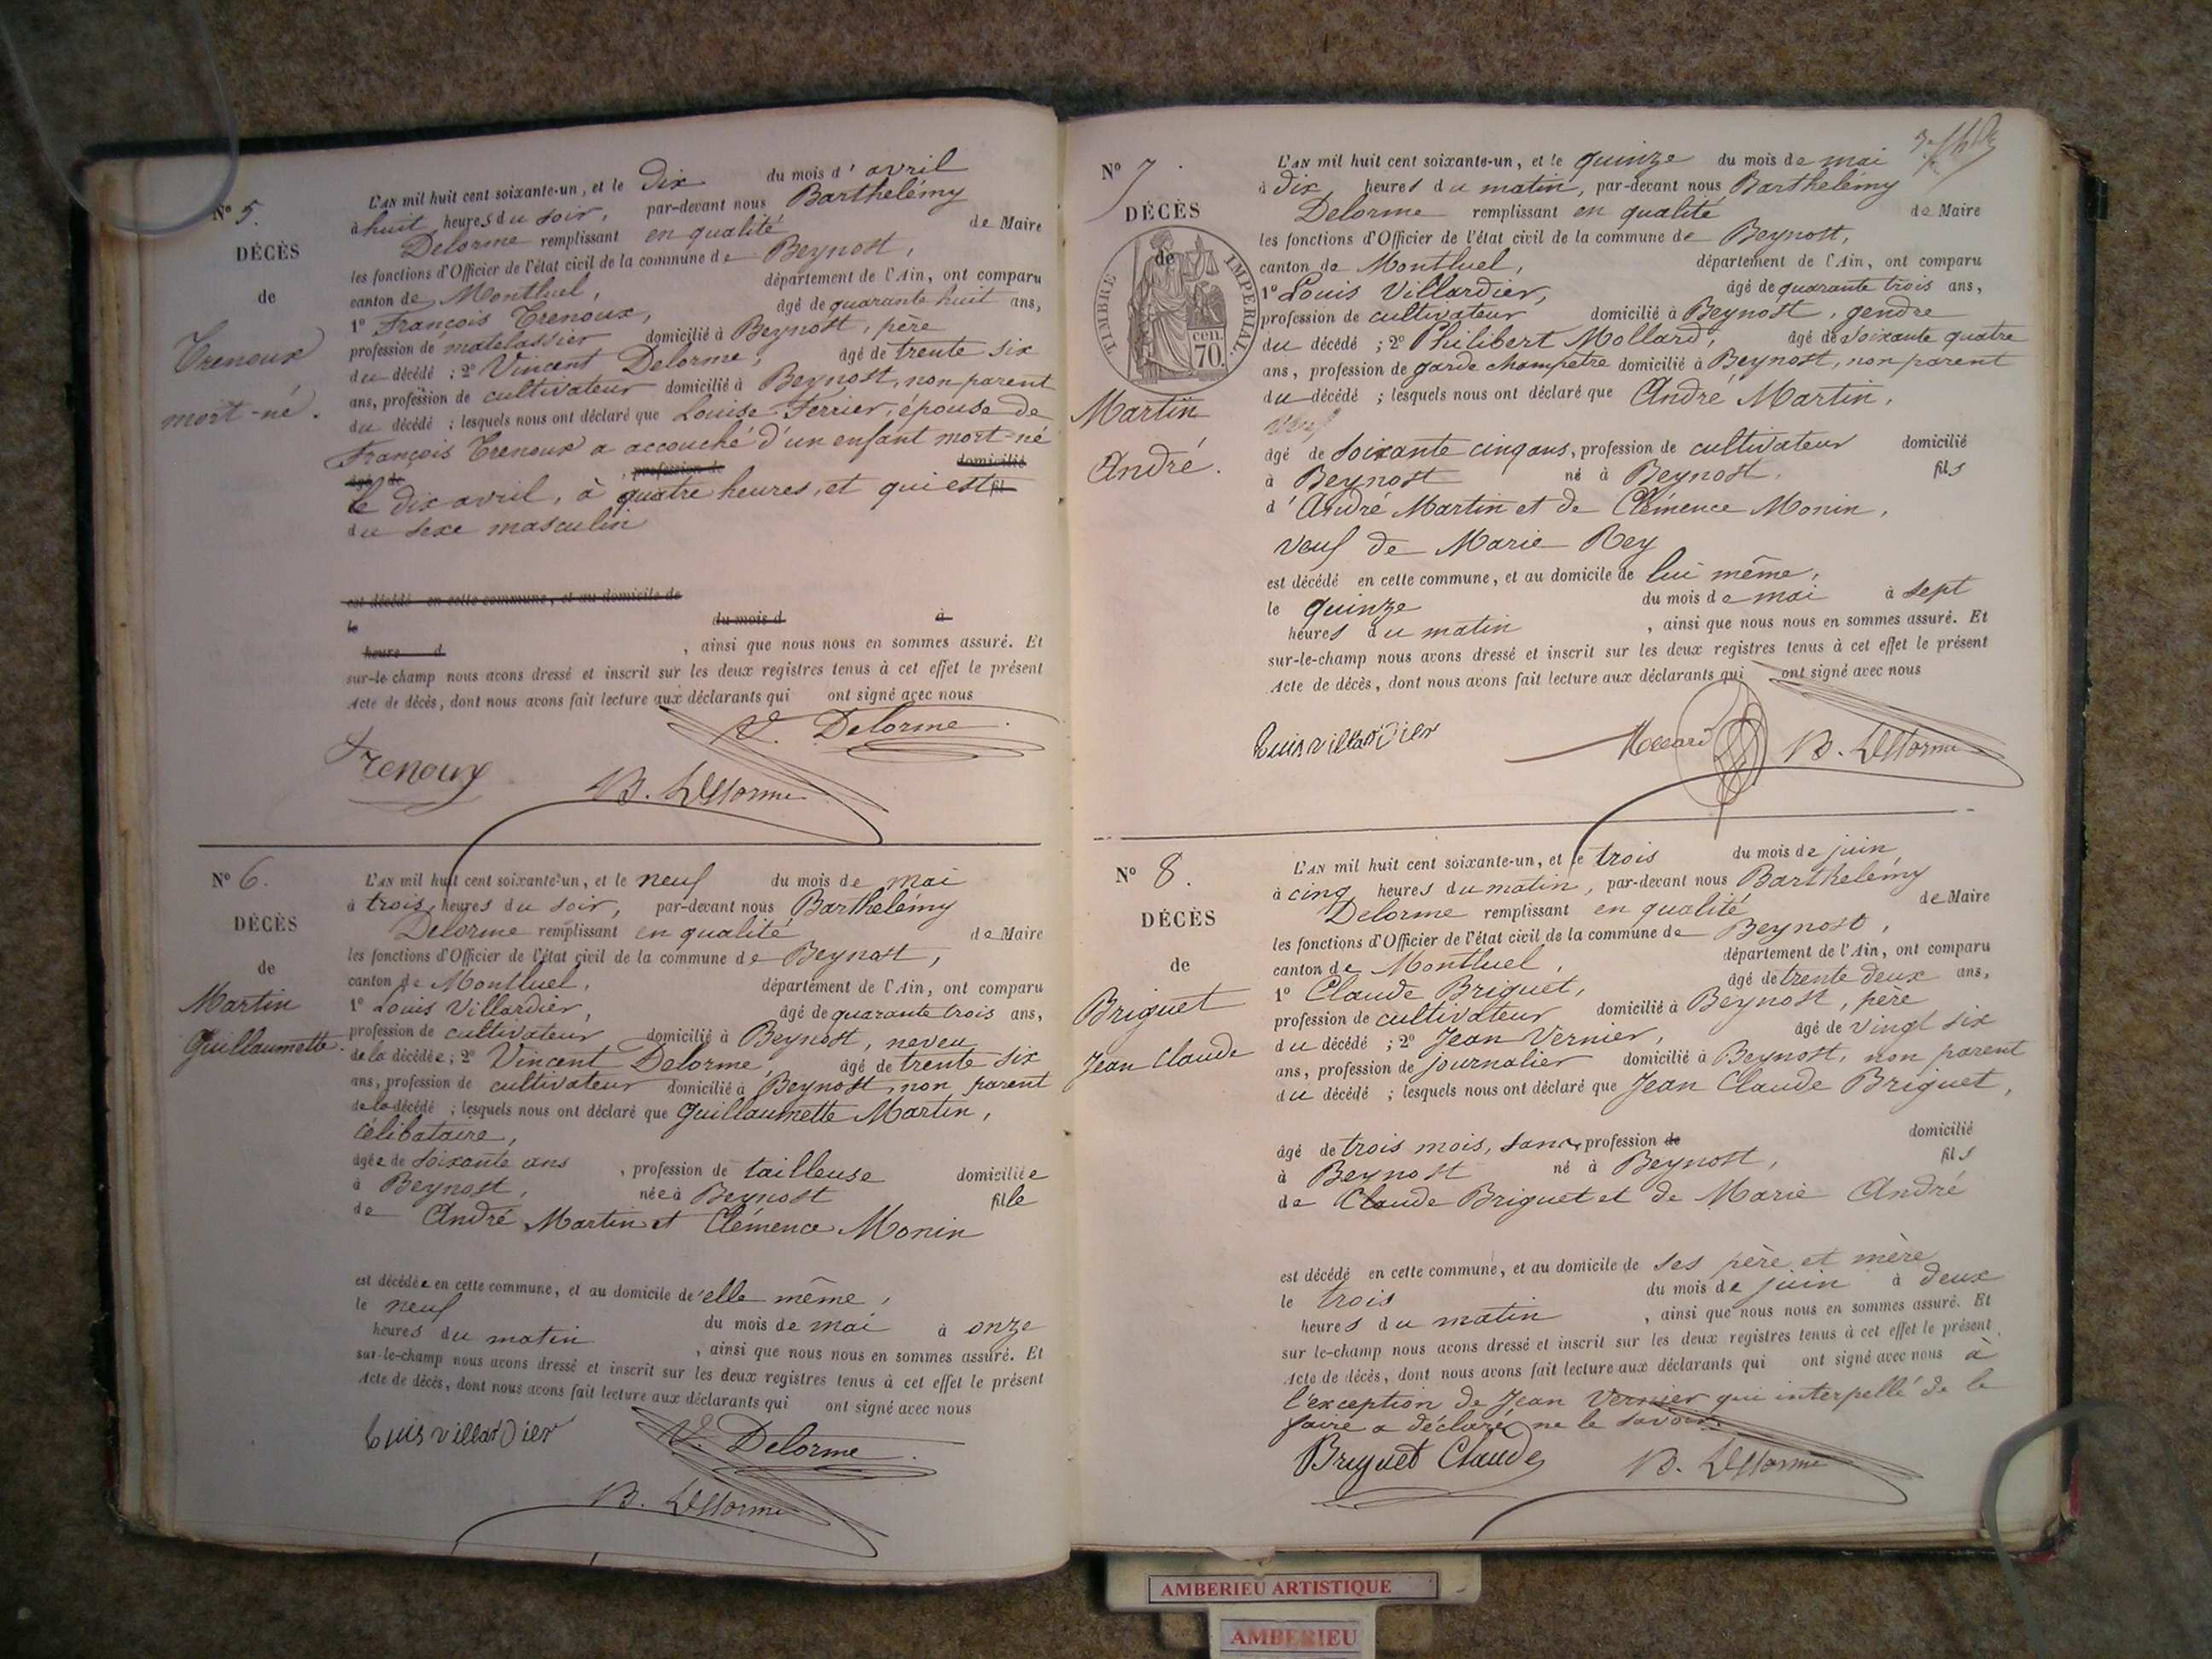 Nº 5.
DÉCÈS
de
Trenoux
mort-né.
L'AN mil huit cent soixante-un, et le Dix du mois d'avril
à huit heures du soir, par-devant nous Barthelémy
Delorme remplissant en qualité de Maire
les fonctions d'Officier de l'état civil de la commune de Beynost,
canton de Montluel, département de l'Ain, ont comparu
1º François Trenoux, âgé de quarante huit ans,
profession de matelassier domicilié à Beynost, père
du décédé ; 2º Vincent Delorme, âgé de trente six
ans, profession de cultivateur domicilié à Beynost, non parent
du décédé ; lesquels nous ont déclaré que Louise Ferrier, épouse de
François Trenoux a accouché d'un enfant mort-né
âgé de profession de domicilié
le dix avril, à quatre heures, et qui est fil
du sexe masculin
est décédé en cette commune, et au domicile de
le du mois d à
heure d , ainsi que nous nous en sommes assuré. Et
sur-le-champ nous avons dressé et inscrit sur les deux registres tenus à cet effet le présent
Acte de décès, dont nous avons fait lecture aux déclarants qui ont signé avec nous
V. Delorme
Trenoux
B. Delorme
Nº 6.
DÉCÈS
de
Martin
Guillaumette.
L'AN mil huit cent soixante-un, et le neuf du mois de mai
à trois heures du soir, par-devant nous Barthelémy
Delorme remplissant en qualité de Maire
les fonctions d'Officier de l'état civil de la commune de Beynost,
canton de Montluel, département de l'Ain, ont comparu
1º Louis Villardier, âgé de quarante trois ans,
profession de cultivateur domicilié à Beynost, neveu
de la décédée ; 2º Vincent Delorme, âgé de trente six
ans, profession de cultivateur domicilié à Beynost, non parent
de la décédé ; lesquels nous ont déclaré que Guillaumette Martin,
célibataire,
âgée de soixante ans , profession de tailleuse domiciliée
à Beynost, née à Beynost fille
de André Martin et Clémence Monin
est décédée en cette commune, et au domicile de elle même,
le neuf du mois de mai à onze
heures du matin , ainsi que nous nous en sommes assuré. Et
sur-le-champ nous avons dressé et inscrit sur les deux registres tenus à cet effet le présent
Acte de décès, dont nous avons fait lecture aux déclarants qui ont signé avec nous
Luis villardier V. Delorme
B. Delorme
Nº 7.
DÉCÈS
de
TIMBRE IMPERIAL
70. cen.
Martin
André.
L'AN mil huit cent soixante-un, et le quinze du mois de mai
à dix heures du matin, par-devant nous Barthelémy
Delorme remplissant en qualité de Maire
les fonctions d'Officier de l'état civil de la commune de Beynost,
canton de Montluel, département de l'Ain, ont comparu
1º Louis Villardier, âgé de quarante trois ans,
profession de cultivateur domicilié à Beynost, gendre
du décédé ; 2º Philibert Mollard, âgé de soixante quatre
ans, profession de garde champetre domicilié à Beynost, non parent
du décédé ; lesquels nous ont déclaré que André Martin,
veuf
âgé de soixante cinq ans, profession de cultivateur domicilié
à Beynost né à Beynost, fils
d'André Martin et de Clémence Monin,
veuf de Marie Rey
est décédé en cette commune, et au domicile de lui même,
le quinze du mois de mai à sept
heures du matin , ainsi que nous nous en sommes assuré. Et
sur-le-champ nous avons dressé et inscrit sur les deux registres tenus à cet effet le présent
Acte de décès, dont nous avons fait lecture aux déclarants qui ont signé avec nous
Luis villardier Mollard B. Delorme
Nº 8.
DÉCÈS
de
Briguet
Jean Claude
L'AN mil huit cent soixante-un, et le trois du mois de juin
à cinq heures du matin, par-devant nous Barthelémy
Delorme remplissant en qualité de Maire
les fonctions d'Officier de l'état civil de la commune de Beynost,
canton de Montluel, département de l'Ain, ont comparu
1º Claude Briguet, âgé de trente deux ans,
profession de cultivateur domicilié à Beynost, père
du décédé ; 2º Jean Vernier, âgé de vingt six
ans, profession de journalier domicilié à Beynost, non parent
du décédé ; lesquels nous ont déclaré que Jean Claude Briguet,
âgé de trois mois, sans profession de domicilié
à Beynost né à Beynost, fils
de Claude Briguet et de Marie André
est décédé en cette commune, et au domicile de ses père et mère
le trois du mois de juin à deux
heures du matin , ainsi que nous nous en sommes assuré. Et
sur le-champ nous avons dressé et inscrit sur les deux registres tenus à cet effet le présent
Acte de décès, dont nous avons fait lecture aux déclarants qui ont signé avec nous à
l'exception de Jean Vernier qui interpellé de le
faire a déclaré ne le savoir.
Briguet Claude B. Delorme
AMBERIEU ARTISTIQUE
AMBERIEU